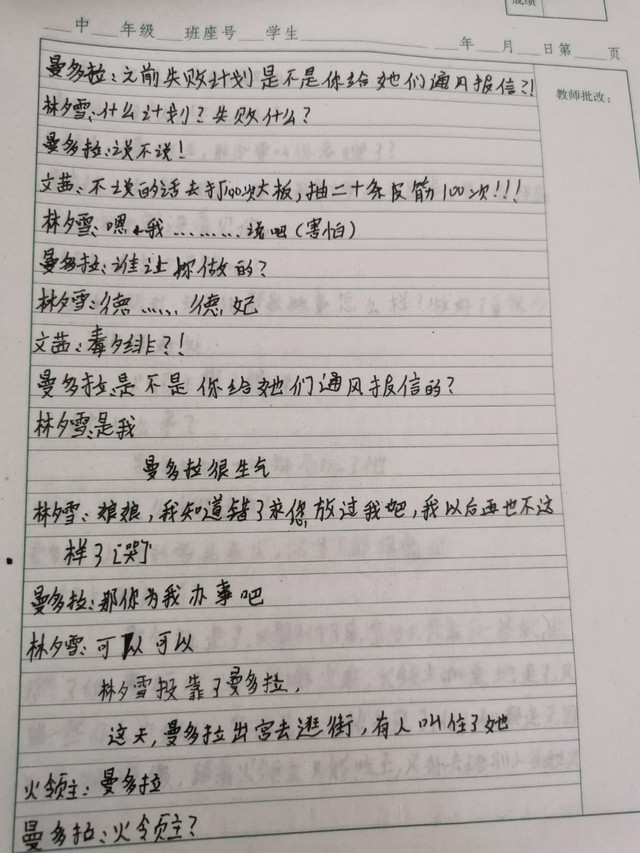 成绩
中 年级 班座号 学生 年 月 日第 页
教师批改:
曼多拉:之前失败计划是不是你给她们通风报信?!
林夕雪:什么计划?失败什么?
曼多拉:说不说!
文茜:不说的话去打100次大板,抽二十条皮筋100次!!!
林夕雪:嗯,我………说吧(害怕)
曼多拉:谁让你做的?
林夕雪:德…… 德妃
文茜:毒夕绯?!
曼多拉:是不是你给她们通风报信的?
林夕雪:是我
曼多拉很生气
林夕雪:娘娘,我知道错了求您放过我吧,我以后再也不这
样了(哭)
曼多拉:那你为我办事吧
林夕雪:可以可以
林夕雪投靠了曼多拉,
这天,曼多拉出宫去逛街,有人叫住了她
火领主:曼多拉
曼多拉:火领主?